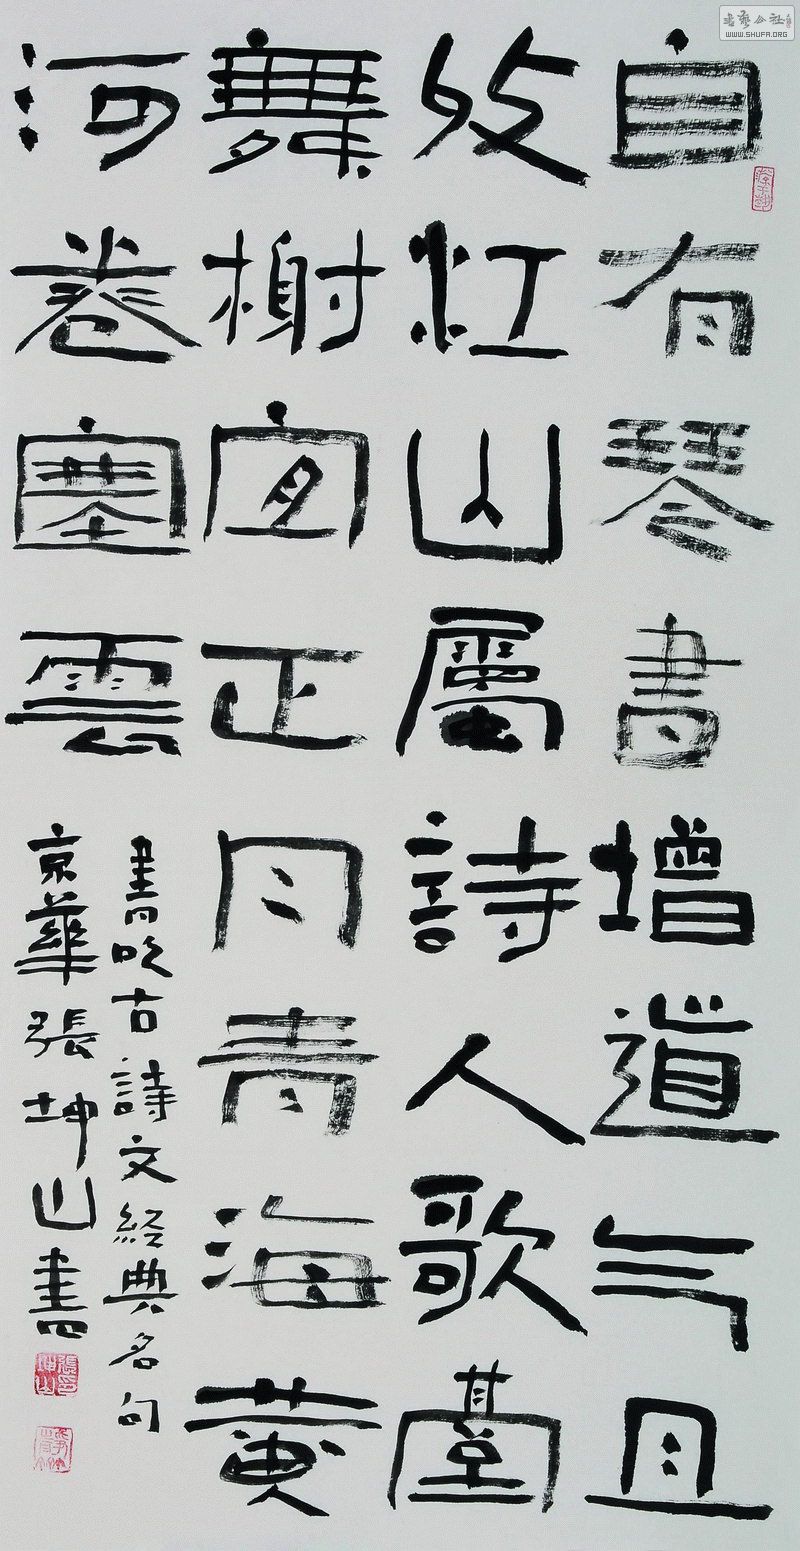 自有琴書增道气且
收江山屬詩人歌臺
舞榭宜正月青海黄
河卷塞雲
書古詩文經典名句
京華張坤山書
書藝公社
WWW.SHUFA.ORG